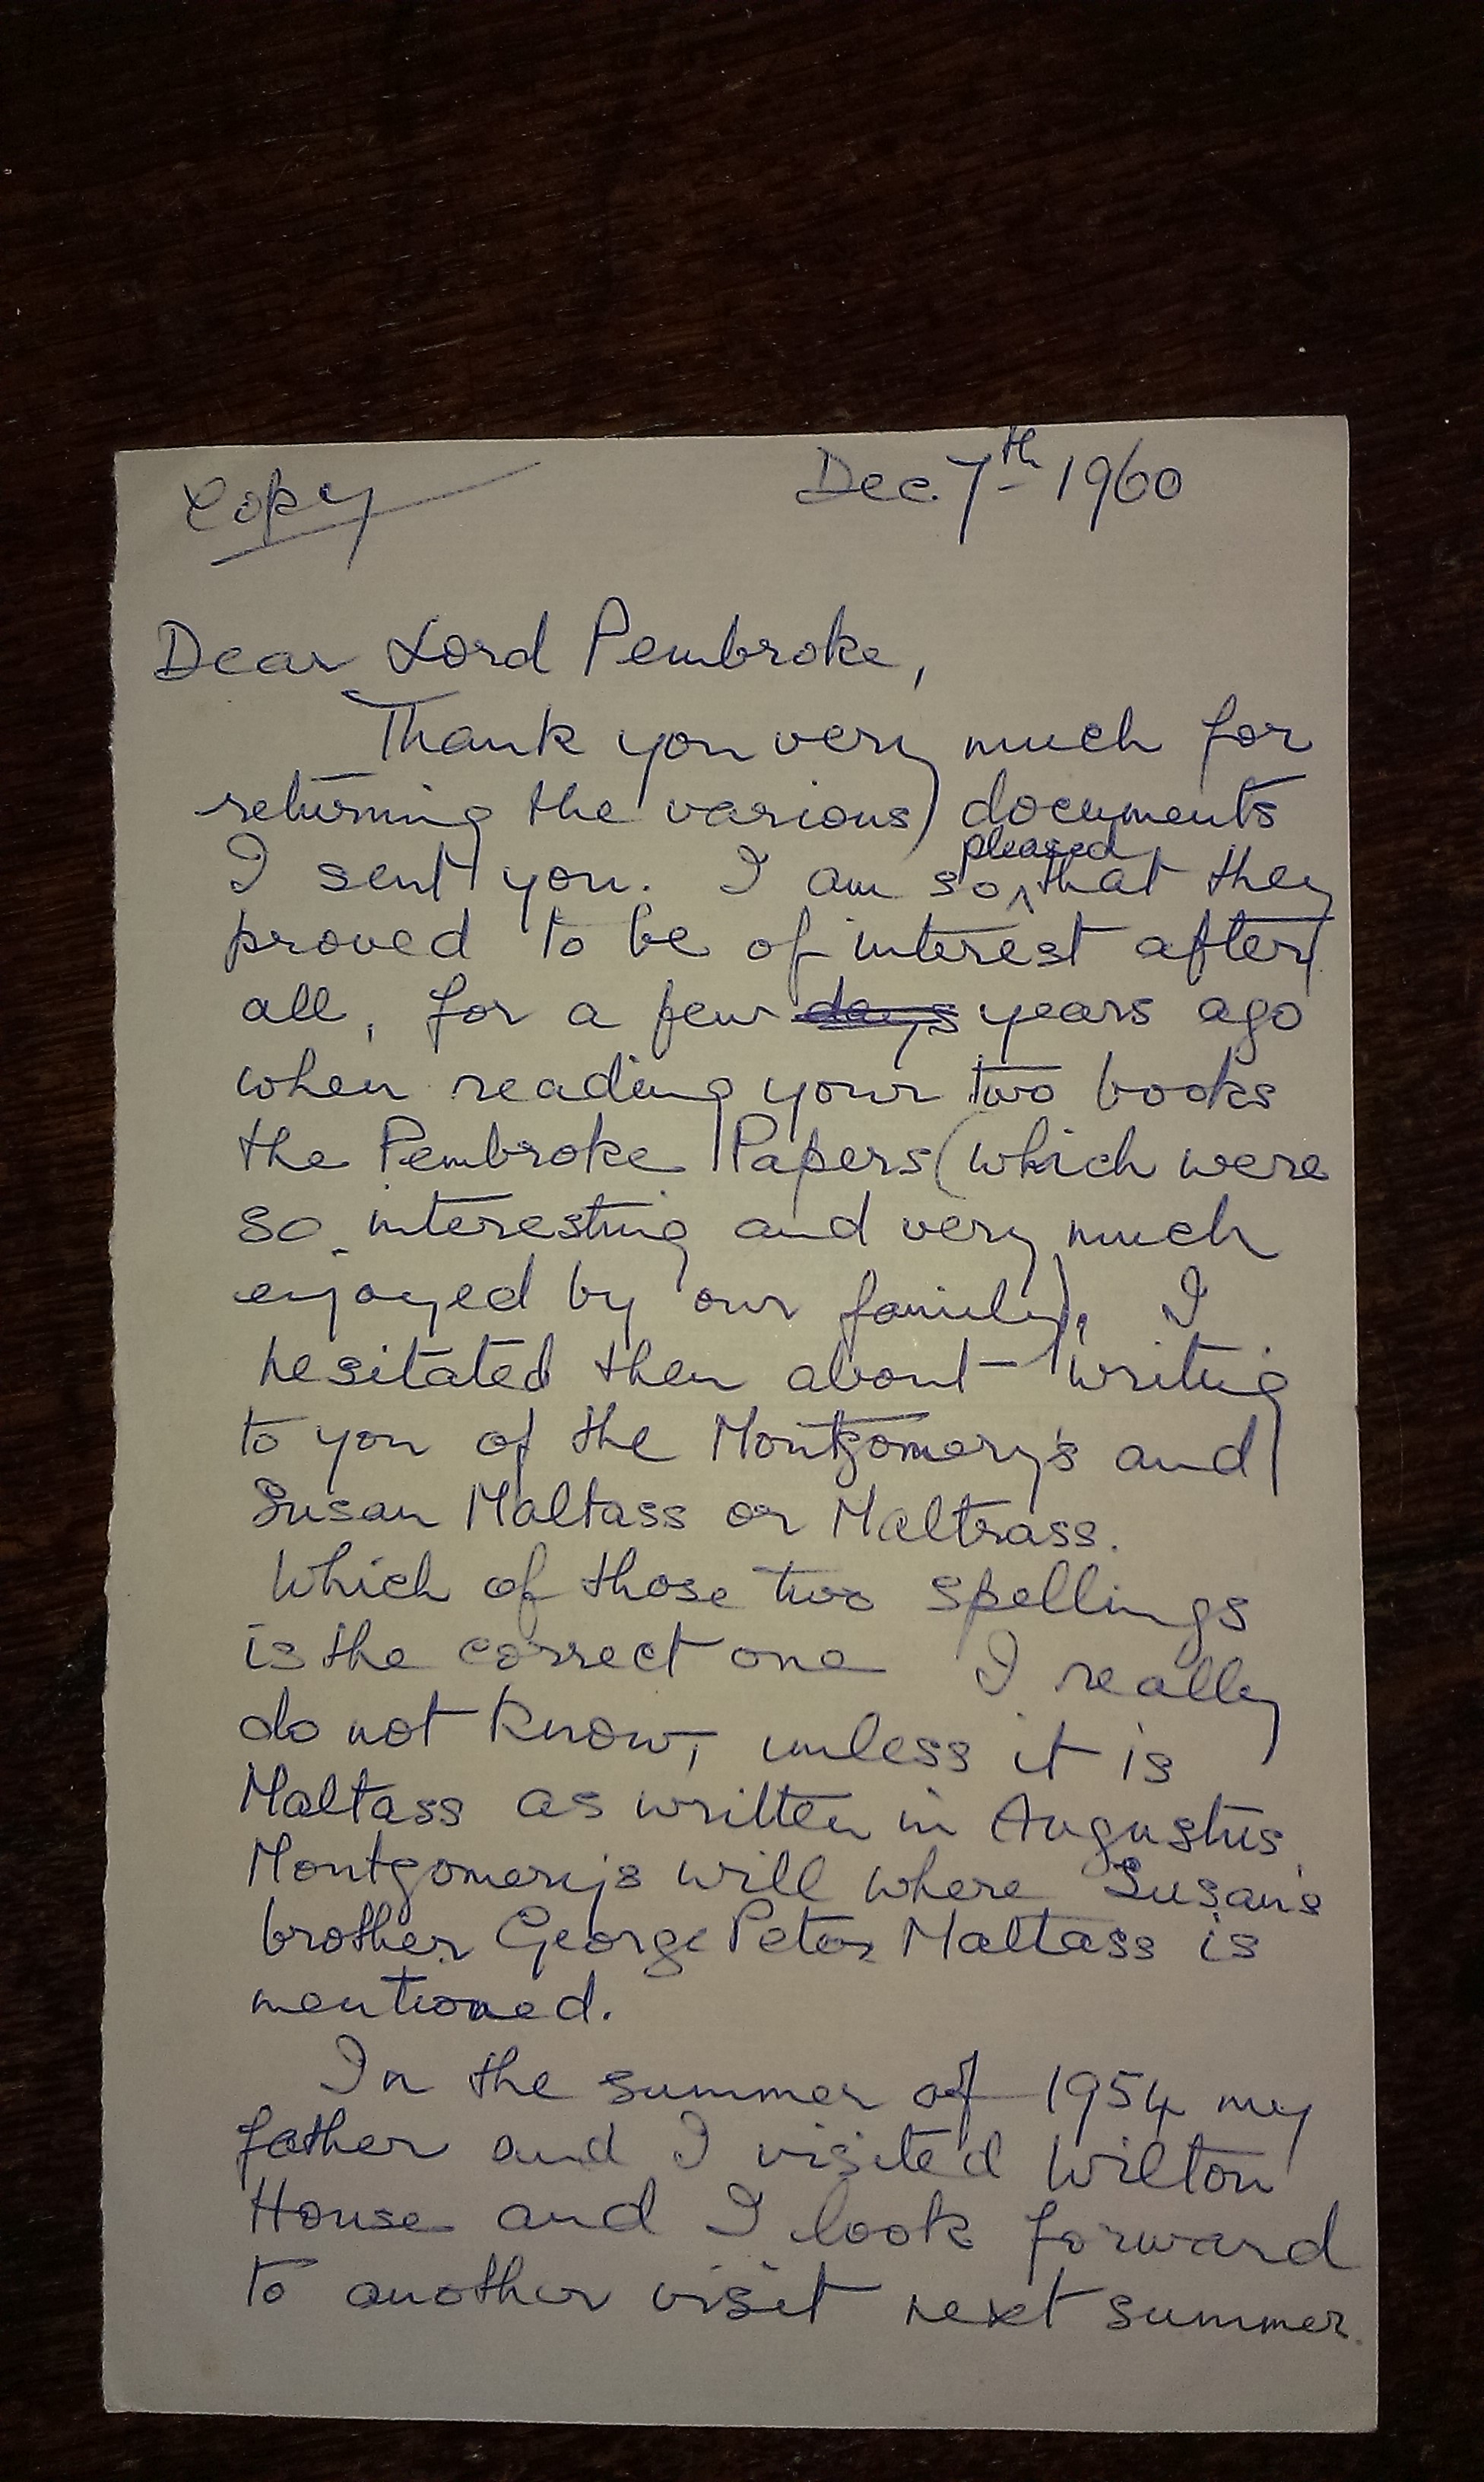 Copy
Dec. 7th 1960
Dear Lord Pembroke,
Thank you very much for
returning the various documents
I sent you. I am so pleased that they
proved to be of interest after
all, for a few days years ago
when reading your two books
the Pembroke Papers (which were
so interesting and very much
enjoyed by our family), I
hesitated then about writing
to you of the Montgomery's and
Susan Maltass or Maltrass.
Which of those two spellings
is the correct one I really
do not know, unless it is
Maltass as written in Augustus
Montgomery's will where Susan's
brother George Peter Maltass is
mentioned.
In the summer of 1954 my
father and I visited Wilton
House and I look forward
to another visit next summer.